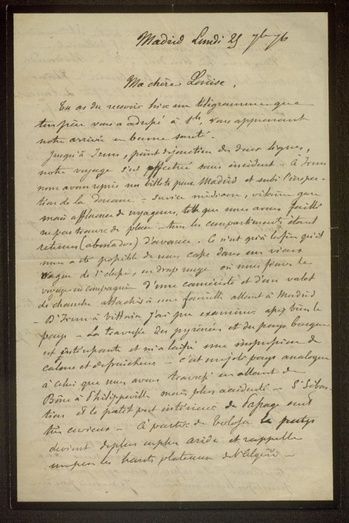 Madrid Lundi 25 7bre 76
Ma chère Louise,
Tu as dû recevoir hier un télégramme que
ton père vous a adressé à 5h. vous apprenant
notre arrivée en bonne santé.
Jusqu'à Irun, point de jonction des deux lignes,
notre voyage s'est effectué sans incident - à Irun
nous avons repris nos billets pour Madrid et subi l'inspec-
tion de la Douane - service médiocre,
mais affluence de voyageurs, telle que nous avons failli
ne pas trouver de place - tous les compartiments étant
retenus d'avance. Ce n'est qu'à la fin qu'il
nous a été possible de nous caser dans un vieux
wagon de 1e classe, en drap rouge où nous fîmes le
voyage en compagnie d'une camériste et d'un valet
de chambre attachés à une famille allant à Madrid
- D'Irun à Vittoria j'ai pu examiner assez bien le
pays - La traversée des Pyrénées et du pays basque
est intéressante et m'a laissé une impression de
calme et de fraîcheur - c'est un joli pays analogue
à celui que nous avons traversé en allant de
Bône à Philippeville mais plus accidenté - St Sébas
tien et le petit port intérieur de Pasage sont
très curieux - À partir de Tolosa le pays
devient de plus en plus aride et rappelle
un peu les hauts plateaux de l'Algérie -